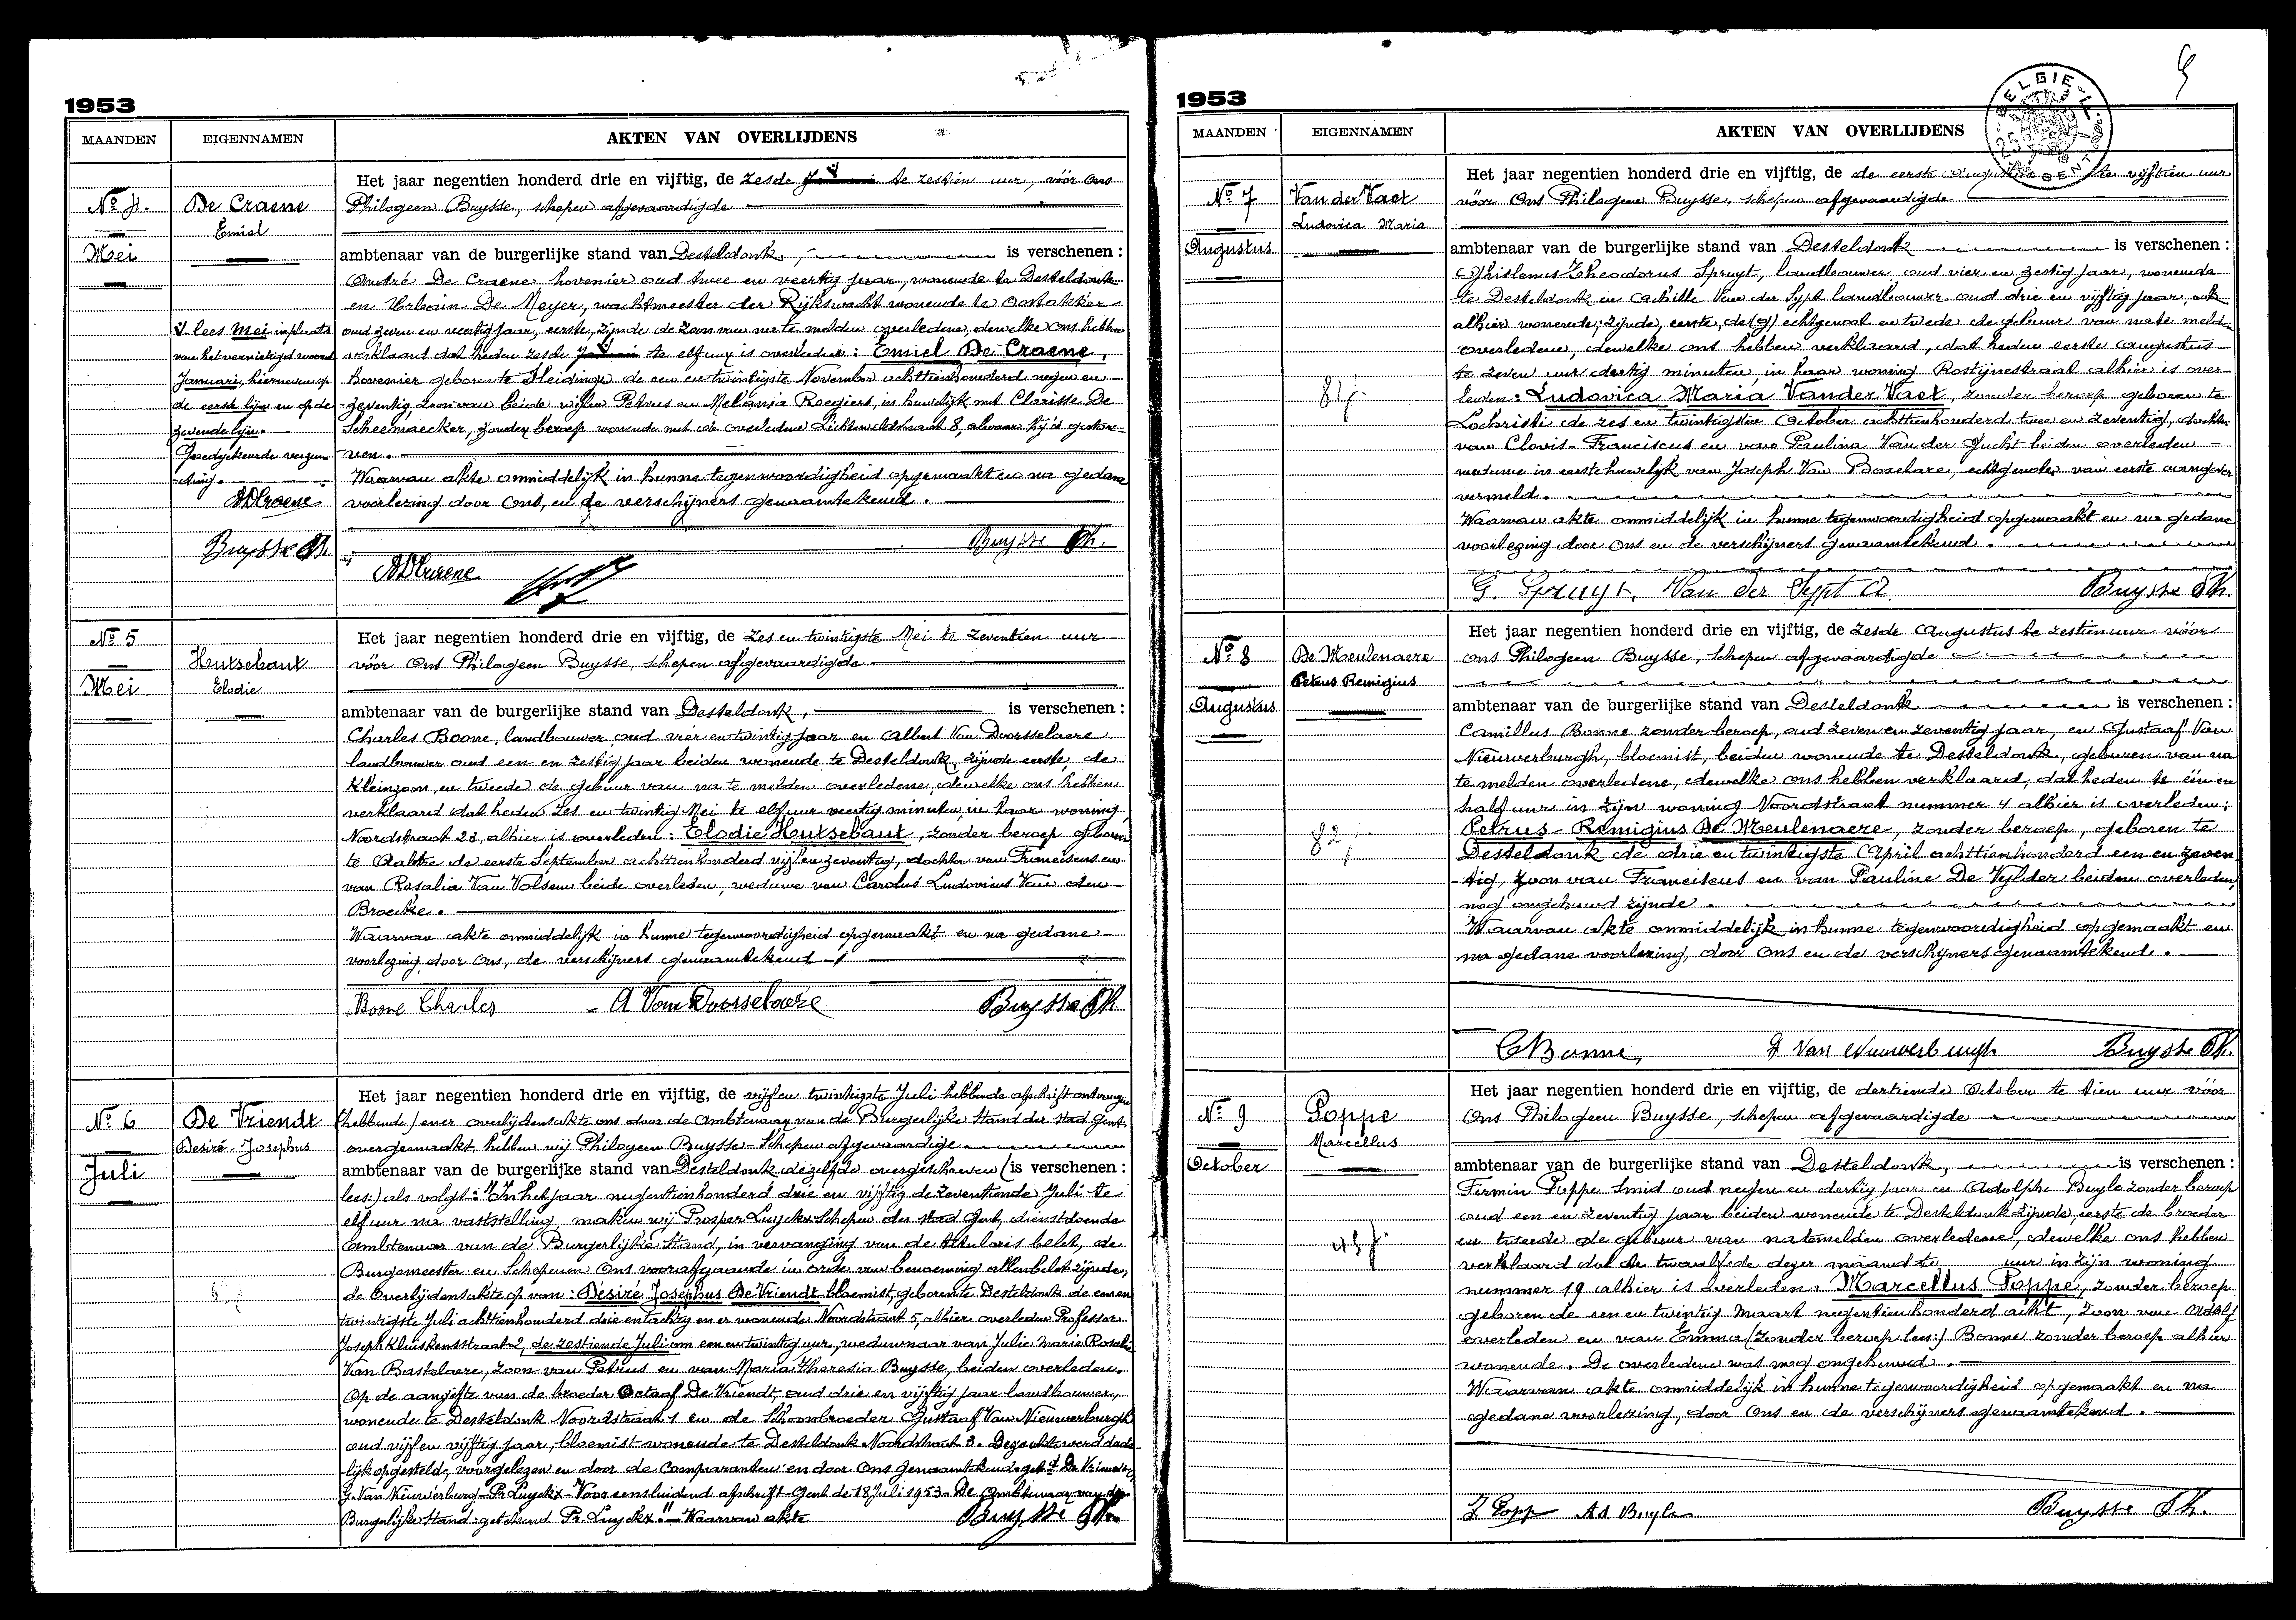 1953
MAANDEN EIGENNAMEN AKTEN VAN OVERLIJDENS
No 4.
De Craene
Emiel
Mei
V lees Mei in plaats
van het vernietigd woord
Januari, hiernevens op
de eerste lijn en op de
zevende lijn.
Goedgekeurde verzen-
ding.
ADCraene
Buysse Ph.
Het jaar negentien honderd drie en vijftig, de zesde V te zestien uur, vóór Ons
Philogeen Buysse, schepen afgevaardigde
ambtenaar van de burgerlijke stand van Desteldonk, is verschenen :
André De Craene hovenier oud twee en veertig jaar, wonende te Desteldonk
en Urbain De Meyer, wachtmeester der Rijkswacht wonende te Oostakker
oud zeven en veertig jaar, eerste, zijnde de zoon van na te melden overledene, dewelke ons hebben
verklaard dat heden zesde V te elf uur is overleden : Emiel De Craene,
hovenier geboren te Sleidinge de een en twintigste November achttienhonderd negen en
zeventig, zoon van beide wijlen Petrus en Melania Roegiers, in huwelijk met Clarisse De
Scheemaecker, zonder beroep wonende met de overledene Lichtelarestraat 8, alwaar hij is gestor-
ven.
Waarvan akte onmiddelijk in hunne tegenwoordigheid opgemaakt en na gedane
voorlezing door Ons, en de verschijners genaamtekend.
Buysse Ph.
ADCraene
No 5
Hutsebaut
Elodie
Mei
Het jaar negentien honderd drie en vijftig, de zes en twintigste Mei te zeventien uur
vóór Ons Philogeen Buysse, schepen afgevaardigde
ambtenaar van de burgerlijke stand van Desteldonk, is verschenen :
Charles Boone, landbouwer, oud vier en twintig jaar en Albert Van Doorsselaere
landbouwer oud een en zestig jaar beiden wonende te Desteldonk, zijnde eerste, de
kleinzoon, en tweede de gebuur van na te melden overledene, dewelke ons hebben
verklaard dat heden zes en twintig Mei te elf uur veertig minuten, in haar woning
Noordstraat 23, alhier is overleden : Elodie Hutsebaut, zonder beroep geboren
te Aaltre de eerste September achttienhonderd vijf en zeventig, dochter van Franciscus en
van Rosalia Van Volsem beide overleden, weduwe van Carolus Ludovicus Van den
Broecke.
Waarvan akte onmiddelijk in hunne tegenwoordigheid opgemaakt en na gedane
voorlezing door Ons, de verschijners genaamtekend
Boone Charles A Van Doorselaere Buysse Ph
No 6
De Vriendt
Desiré-Josephus
Juli
Het jaar negentien honderd drie en vijftig, de vijf en twintigste Juli hebbende afschrift ontvangen
(hebbende) ener overlijdensakte ons door de Ambtenaar van de Burgerlijke Stand der stad Gent
overgemaakt, hebben wij Philogeen Buysse-Schepen afgevaardige
ambtenaar van de burgerlijke stand van Desteldonk dezelfde overgeschreven (is verschenen :
lees:) als volgt: "In het jaar negentienhonderd drie en vijftig de zeventiende Juli te
elf uur na vaststelling, maken wij Prosper Luyckx Schepen der stad Gent, dienstdoende
Ambtenaar van de Burgerlijke Stand, in vervanging van de titularis belet, de
Burgemeester en Schepenen Ons voorafgaande in orde van benoeming allen belet zijnde,
de Overlijdensakte op van : Désiré Josephus De Vriendt bloemist, geboren te Desteldonk de een en
twintigste Juli achttienhonderd drie en tachtig en er wonende Noordstraat 5, alhier overleden Professor
Joseph Kluiskensstraat 2, de zestiende Juli om een en twintig uur, weduwnaar van Julie Marie Rosalie
Van Bastelaere, zoon van Petrus en van Maria Theresia Buysse, beiden overleden.
Op de aangifte van de broeder Octaaf De Vriendt, oud drie en vijftig jaar landbouwer,
wonende te Desteldonk Noordstraat 1 en de schoonbroeder Gustaaf Van Nieuwerburgh
oud vijf en vijftig jaar, bloemist wonende te Desteldonk Noordstraat 3. Deze akte werd dade-
lijk opgesteld, voorgelezen en door de Comparanten en door Ons genaamtekend get. O. De Vriendt
G. Van Nieuwerburg - Pr. Luyckx - Voor eensluidend afschrift - Gent de 18 Juli 1953 - De Ambtenaar van de
Burgelijke Stand : getekend Pr. Luyckx." - Waarvan akte Buysse Ph.
1953
BELGIE
GENT
MAANDEN EIGENNAMEN AKTEN VAN OVERLIJDENS
No 7
Van der Vaet
Ludovica Maria
Augustus
81 j.
Het jaar negentien honderd drie en vijftig, de de eerste Augustus te vijftien uur
vóór Ons Philogeen Buysse, schepen afgevaardigde
ambtenaar van de burgerlijke stand van Desteldonk is verschenen :
Ghislenus Theodorus Spruyt, landbouwer oud vier en zestig jaar, wonende
te Desteldonk en Achille Van der Sypt landbouwer oud drie en vijftig jaar, ook
alhier wonende; zijnde, eerste, de (g) echtgenoot en twede de gebuur van na te melden
overledene, dewelke ons hebben verklaard, dat heden eerste Augustus
te zeven uur dertig minuten, in haar woning Rostijnestraat alhier is over-
leden: Ludovica Maria Vander Vaet, zonder beroep geboren te
Lochristi de zes en twintigste October achttienhonderd twee en zeventig, dochter
van Clovis-Franciscus en van Paulina Van der Gucht beiden overleden
weduwe in eerste huwelijk van Joseph Van Boxelaere, echtgenote van eerste aangever
vermeld.
Waarvan akte onmiddelijk in hunne tegenwoordigheid opgemaakt en na gedane
voorlezing door Ons en de verschijners genaamtekend.
G. Spruyt. Van der Sypt A Buysse Ph.
No 8
De Meulenaere
Petrus Remigius
Augustus
82 j
Het jaar negentien honderd drie en vijftig, de zesde Augustus te zestien uur vóór
ons Philogeen Buysse, Schepen afgevaardigde
ambtenaar van de burgerlijke stand van Desteldonk is verschenen :
Camillus Bonne zonder beroep, oud zeven en zeventig jaar, en Gustaaf Van
Nieuwerburgh, bloemist, beiden wonende te Desteldonk, geburen van na
te melden overledene, dewelke ons hebben verklaard, dat heden te één en
half uur in zijn woning Noordstraat nummer 4 alhier is overleden:
Petrus-Remigius De Meulenaere, zonder beroep, geboren te
Desteldonk de drie en twintigste April achttienhonderd een en zeven-
tig, zoon van Franciscus en van Pauline De Vylder beiden overleden,
nog ongehuwd zijnde.
Waarvan akte onmiddelijk in hunne tegenwoordigheid opgemaakt en
na gedane voorlezing, door Ons en de verschijners genaamtekend.
C Bonne, G Van Nieuwerburgh Buysse Ph.
No 9
Poppe
Marcellus
October
45 j.
Het jaar negentien honderd drie en vijftig, de dertiende October te tien uur vóór
Ons Philogeen Buysse, schepen afgevaardigde
ambtenaar van de burgerlijke stand van Desteldonk, is verschenen :
Firmin Poppe Smid oud negen en dertig jaar en Adolphe Buyle zonder beroep
oud een en zeventig jaar beiden wonende te Desteldonk zijnde, eerste de broeder
en tweede de gebuur van natemelden overledene, dewelke ons hebben
verklaard dat de twaalfde dezer maand te uur in zijn woning
nummer 19 alhier is overleden: Marcellus Poppe, zonder beroep
geboren de een en twintig Maart negentienhonderd acht, zoon van Adolf
overleden en van Emma (zonder beroep lees:) Bonne zonder beroep alhier
wonende. De overledene was nog ongehuwd.
Waarvan akte onmiddelijk in hunne tegenwoordigheid opgemaakt en na
gedane voorlezing, door Ons en de verschijners genaamtekend.
F Popp Ad. Buyle Buysse Ph.